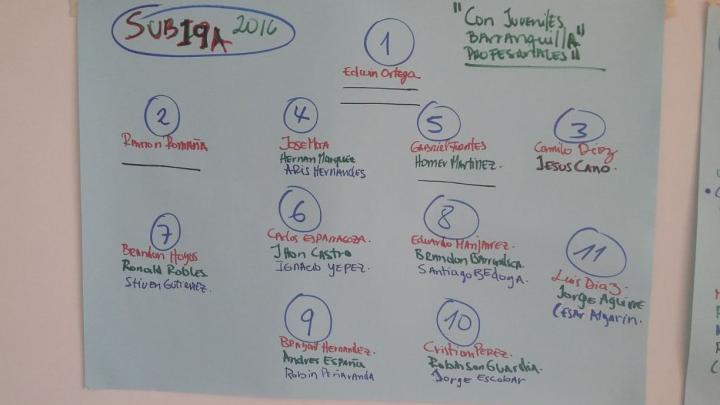 SUB19A 2016
"CON JUVENILES
BARRANQUILLA"
PROFESIONALES"
1
Edwin Ortega
2
Ramon
4
Jose Mora
Hernan Marquez
ARIS HERNANDES
5
GABRIEL FUENTES
Homer Martinez.
3
Camilo Diaz
JESUS CANO.
7
Brandon Hoyos
Ronald Robles
Stiven Gutierrez.
6
Carlos ESPARRAGOZA.
Jhon Castro
IGNACIO YEPEZ.
8
Eduardo Manjarrez.
Brandon
SANTIAGO BEdoyA.
11
Luis Diaz.
Jorge Aguirre
CESAR Algarin.
9
Brayan Hernandez.
Andres España
Robin Peñaranda
10
Cristian PEREZ.
Robinson Guardia.
Jorge Escobar